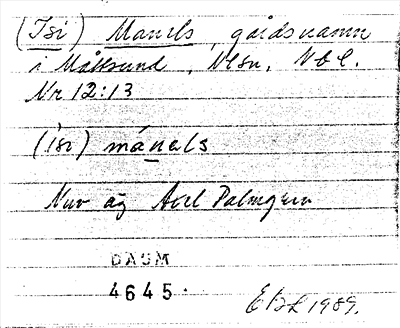 (Isi) Manels, gårdsnamn
i Måttsund, Nlsn, Nbl.
Nr 12:13
(ísi) mánels
Nuv äg Axel Palmgren
DAUM
4645.
1989.